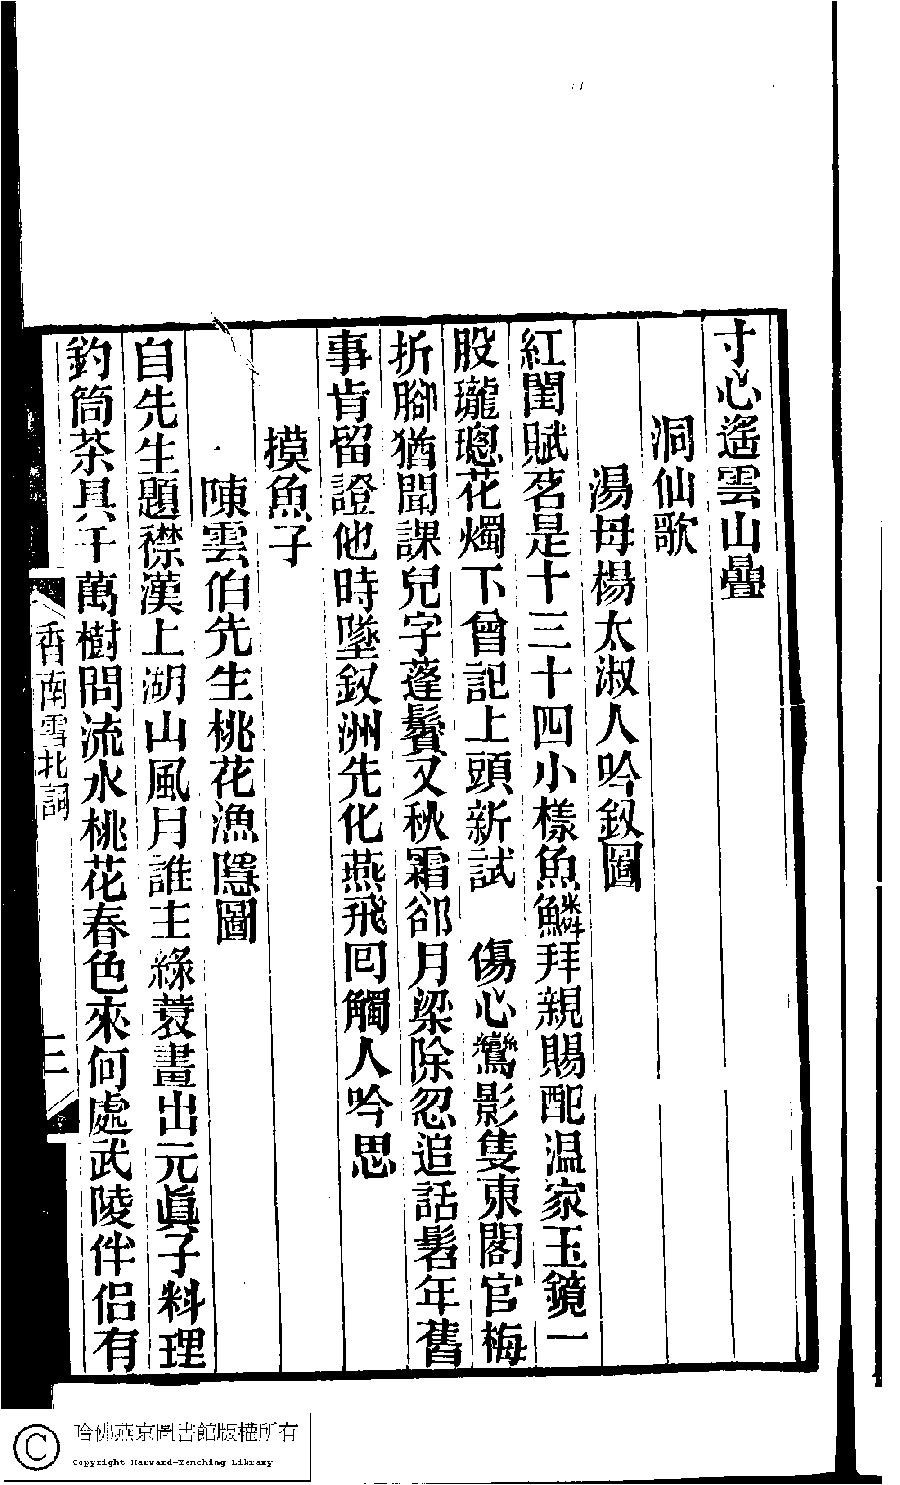 寸心遙雲山疊
洞仙歌
湯母楊太淑人吟釵圖
紅閨賦茗是十三十四小樣魚鱗拜親賜配温家玉鏡一
股瓏璁花燭下曾記上頭新試　傷心鸞影隻東閣官梅
折腳猶聞課兒字蓬鬢又秋霜郤月梁除忽追話髫年舊
事肯留證他時墜釵洲先化燕飛回觸人吟思
摸魚子
陳雲伯先生桃花漁隱圖
自先生題襟漢上湖山風月誰主綠蓑畫出元眞子料理
釣筒茶具千萬樹問流水桃花春色來何處武陵伴侶有
香南雪北詞
三
哈佛燕京圖書館版權所有
Copyright Harvard-Yenching Library